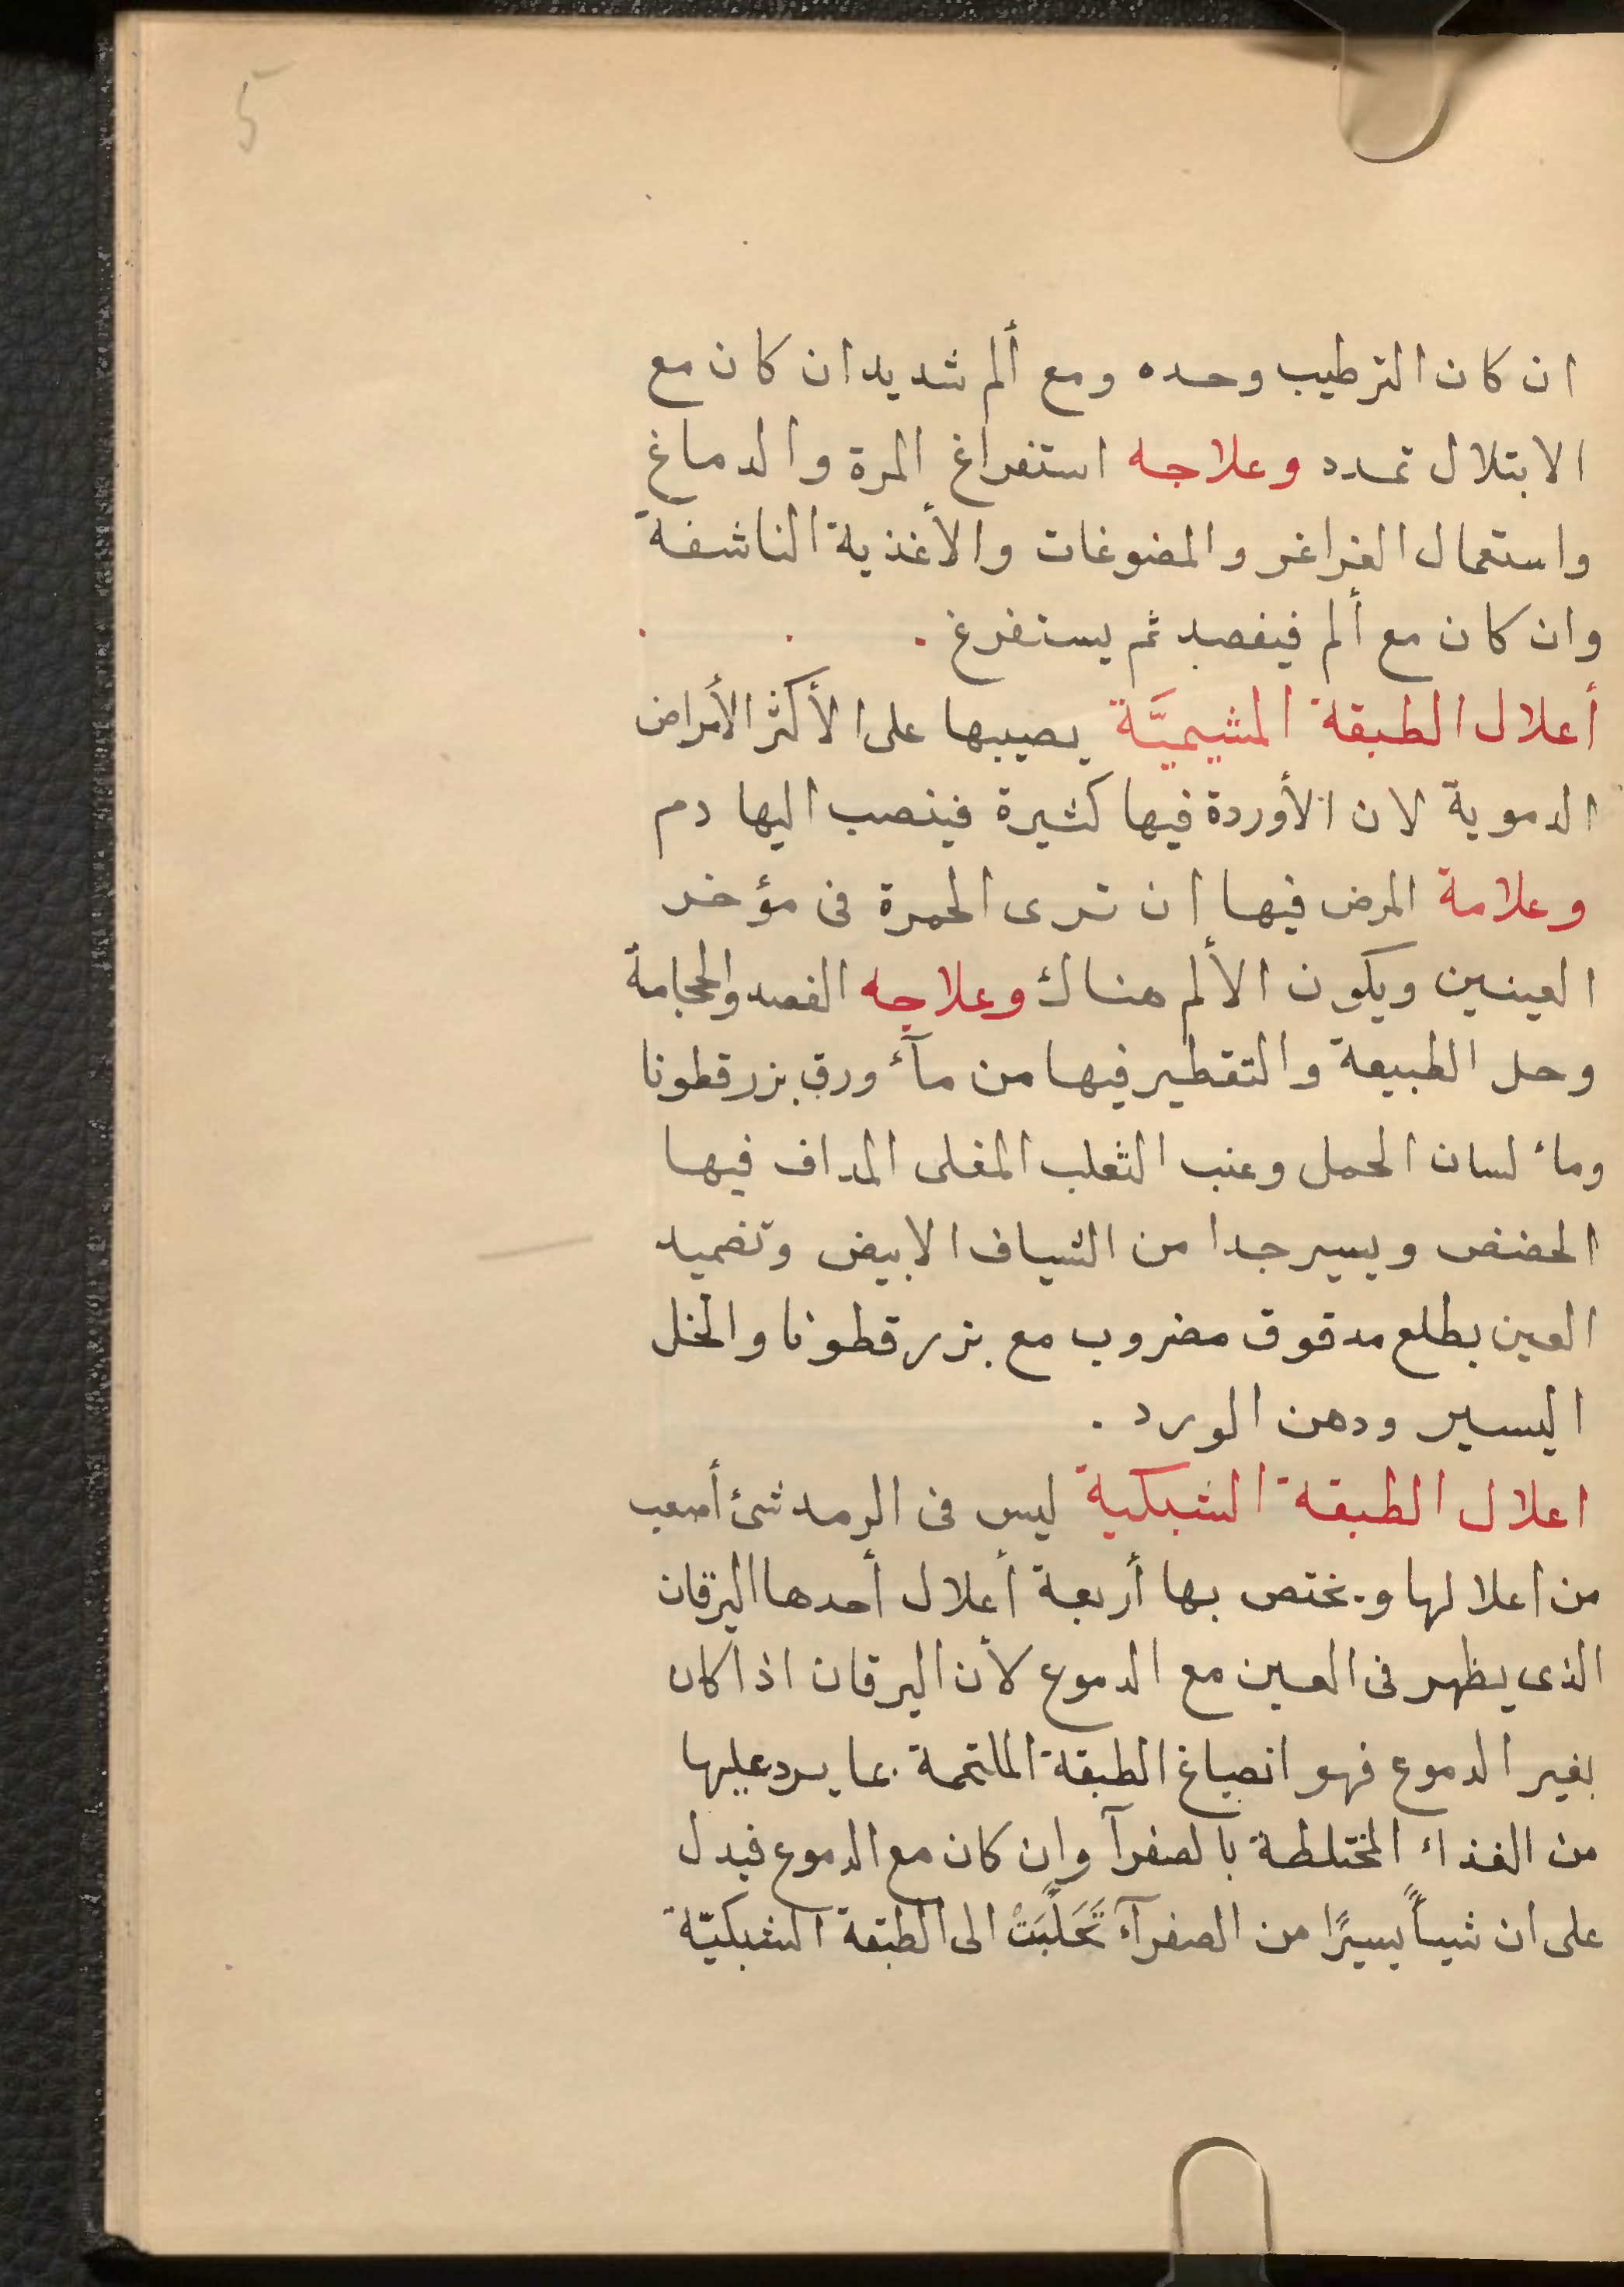 5
ان كان الترطيب وحده ومع ألم شديد ان كان مع
الابتلال تمدد وعلاجه استفراغ المرة والدماغ
واستعمال الغراغر والمضوغات والأغذية الناشفة
وان كان مع ألم فيفصد ثم يستفرغ .
أعلال الطبقة المشيميَّة يصيبها على الأكثر الأمراض
الدموية لان الأوردة فيها كثيرة فينصب اليها دم
وعلامة المرض فيها ان ترى الحمرة فى مؤخر
العينين ويكون الألم هناك وعلاجه الفصد والحجامة
وحل الطبيعة والتقطير فيها من مآء ورق بزرقطونا
وماء لسان الحمل وعنب الثعلب المغلى المداف فيها
الحضض ويسير جدا من الشياف الابيض وتضميد
العين بطلع مدقوق مضروب مع بزرقطونا والخل
اليسير ودهن الورد .
اعلال الطبقة الشبكية ليس فى الرمد شئ أصعب
من اعلالها ويختص بها أربعة أعلال أحدها اليرقان
الذى يظهر فى العين مع الدموع لأن اليرقان اذا كان
بغير الدموع فهو انصباغ الطبقة الملتحمة بما يرد عليها
من الغذاء المختلطة بالصفرآ وان كان مع الدموع فيدل
على ان شيىأً يسيرًا من الصفرآء تَحَلَّبَتْ الى الطبقة الشبكيّة